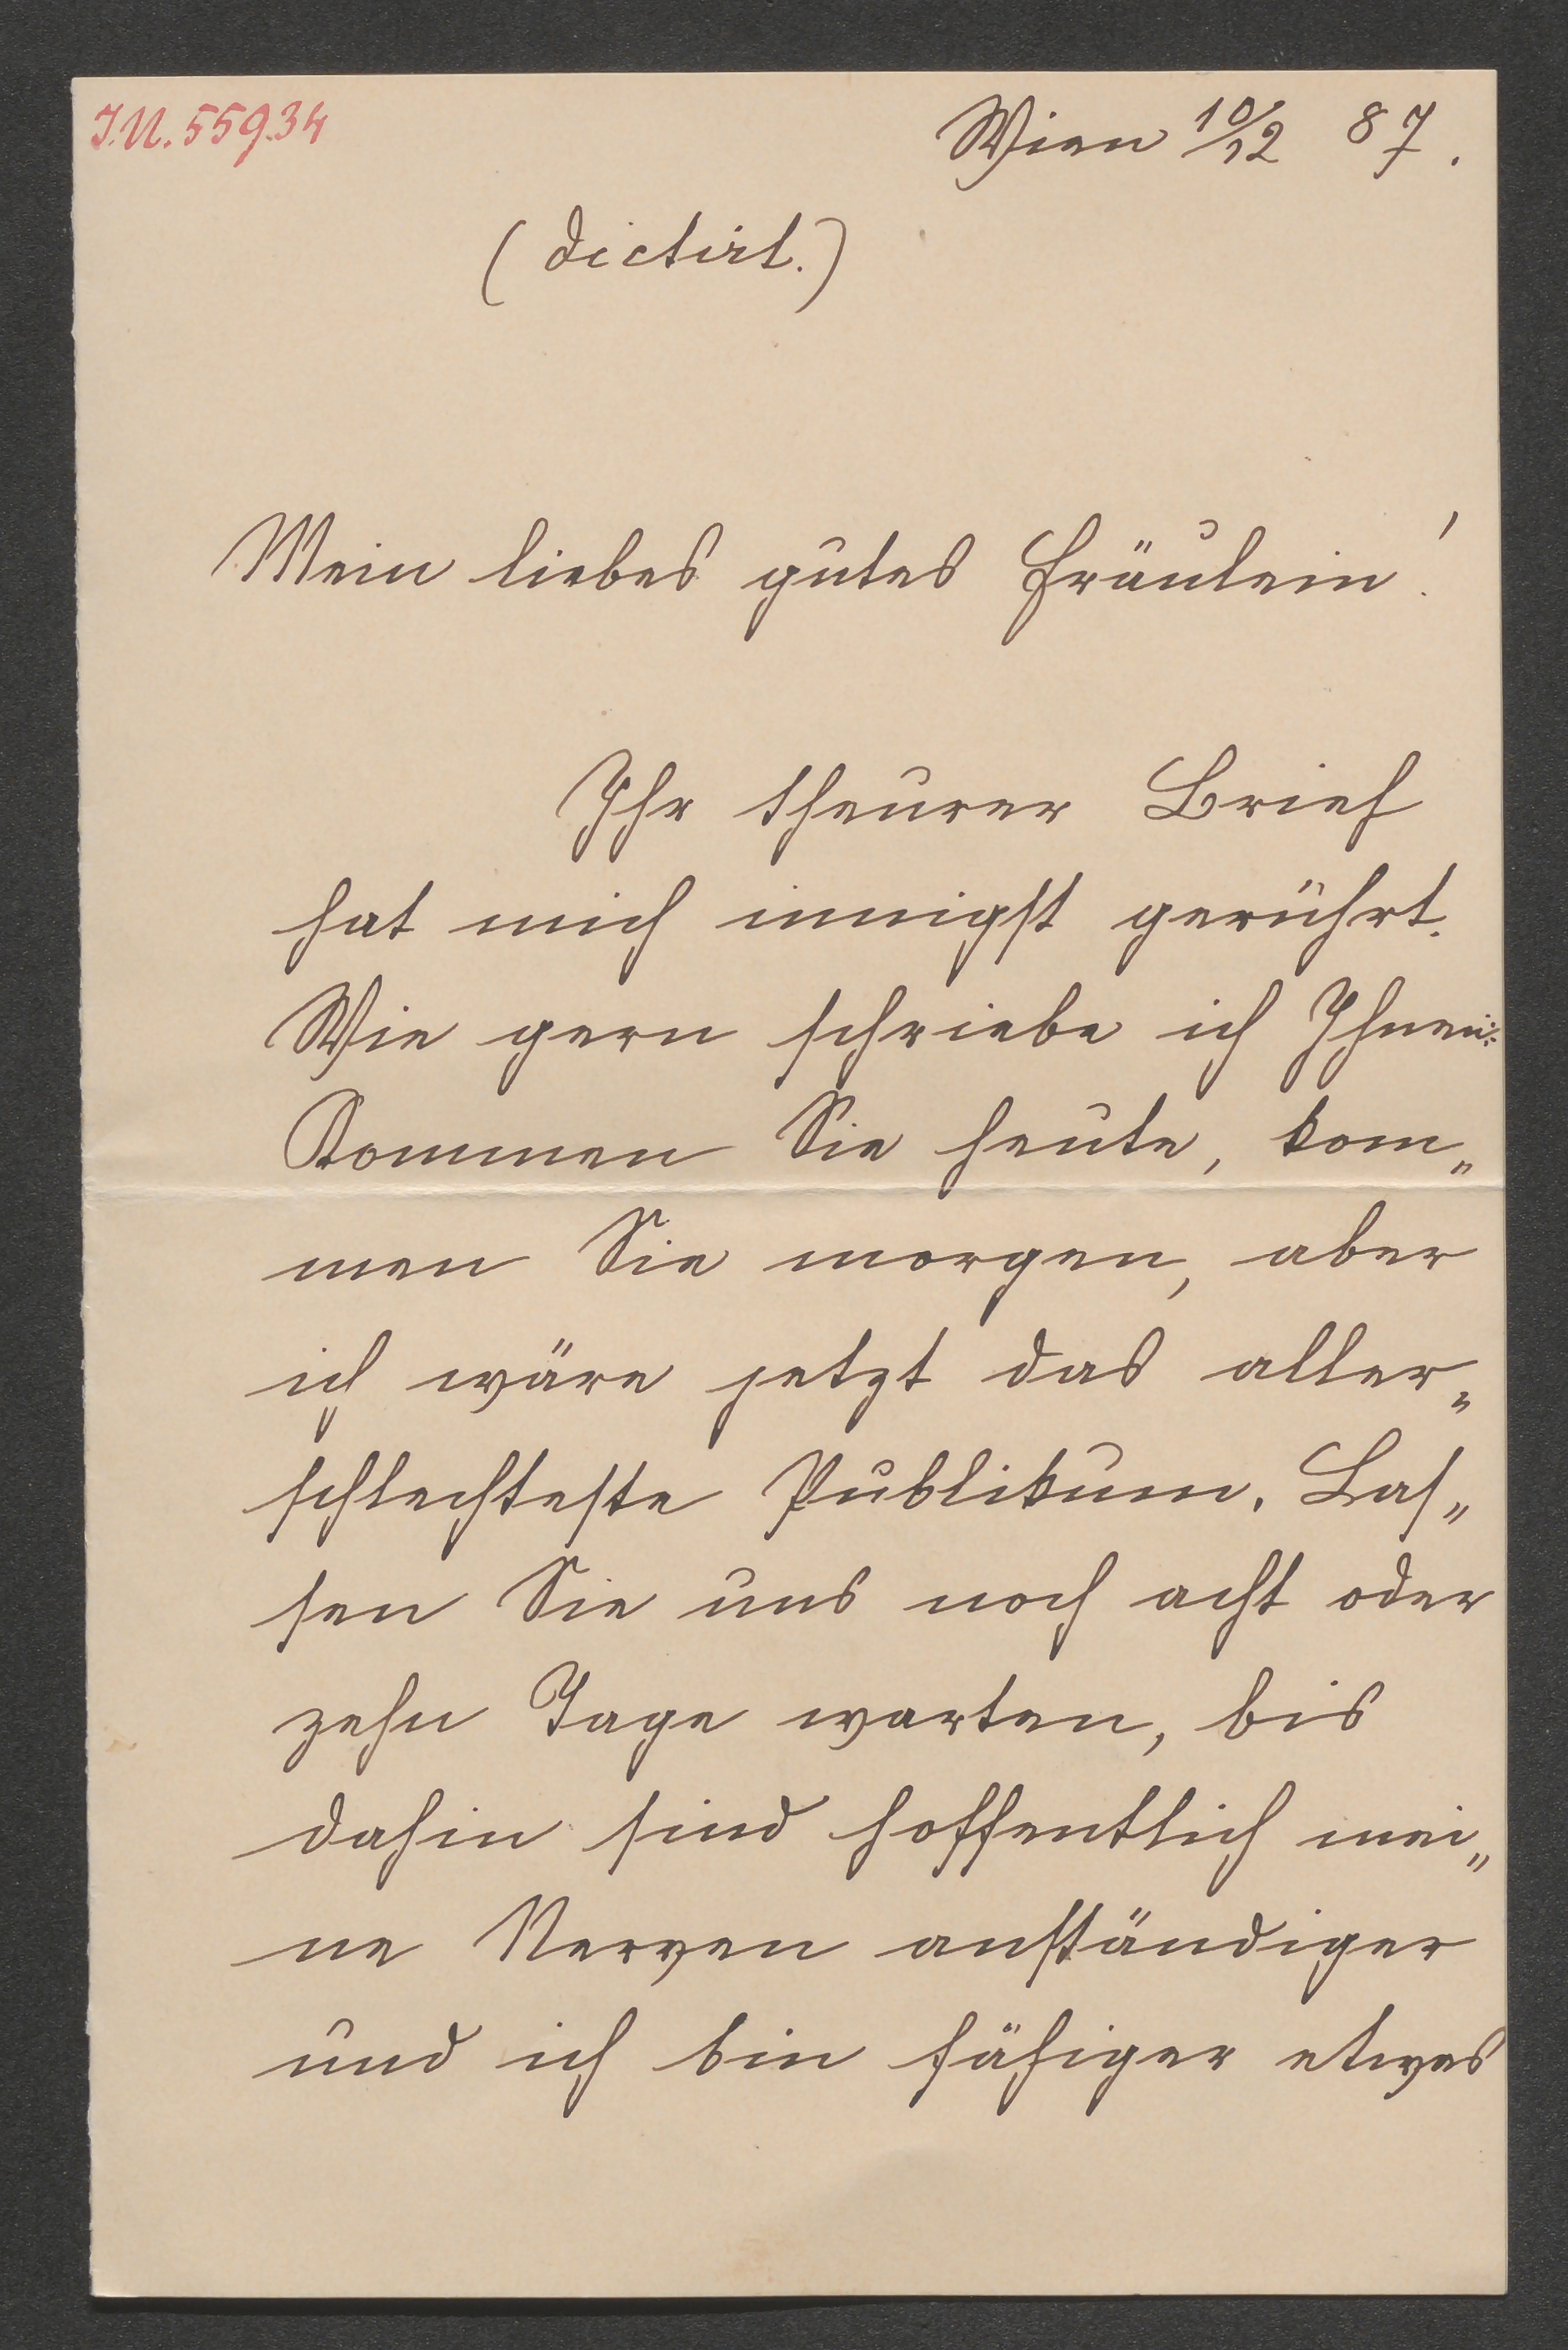 I.N. 55934
Wien 10/12 87.
(dictirt.)
Mein liebes gutes Fräulein!
Ihr theurer Brief
hat mich innigst gerührt.
Wie gern schriebe ich Ihnen:
Kommen Sie heute, kom„
men Sie morgen, aber
ich wäre jetzt das aller„
schlechteste Publikum. Las„
sen Sie uns noch acht oder
zehn Tage warten, bis
dahin sind hoffentlich mei„
ne Nerven anständiger
und ich bin fähiger etwas